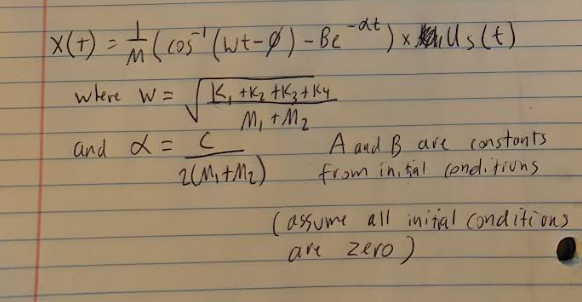 X(t) = 1/M (cos⁻¹(Wt-ϕ) - Be^-αt) x Us(t)
where W = √(K₁ + K₂ + K₃ + K4 / M₁ + M₂)
and α = C / 2(M₁+M₂) A and B are constants
from initial conditions
(assume all initial conditions
are zero)